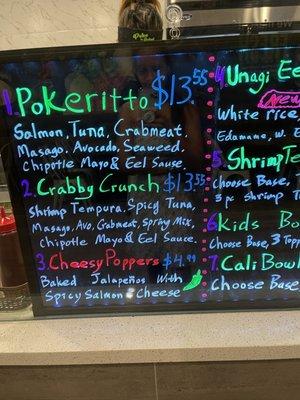 1. Pokeritto $13.55
Salmon, Tuna, Crabmeat,
Masago, Avocado, Seaweed,
Chipotle Mayo & Eel Sauce
2. Crabby Crunch $13.55
Shrimp Tempura, Spicy Tuna,
Masago, Avo, Crabmeat, Spring Mix,
Chipotle Mayo & Eel Sauce.
3. Cheesy Poppers $4.99
Baked Jalapeños With
Spicy Salmon & Cheese
4. Unagi
White rice,
Edamame, w.
5. Shrimp
Choose Base,
3 pc Shrimp
6. Kids
Choose Base, 3
7. Cali Bowl
Choose Base